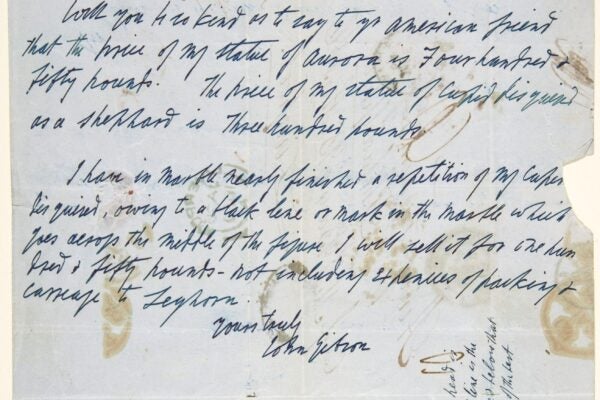 Will you be so kind as to say to yr american friend
that the price of my statue of Aurora is Four hundred &
fifty pounds. The price of my statue of Cupid disguised
as a shephard is three hundred pounds.
I have in marble nearly finished a repetition of my Cupid
disguised, owing to a black line or mark in the marble which
goes across the middle of the figure I will sell it for one hun
dred & fifty pounds - not including expences of packing &
carriage to Leghorn.
yours truly
John Gibson
head is
line is the
below that
of the best